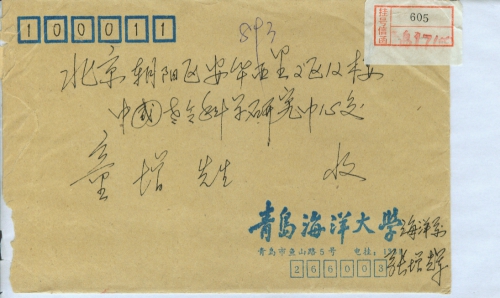 100011
893
挂号信函
605
北京朝阳区安华西里2区12楼
中国老龄科学研究中心交
童增 先生 收
青岛海洋大学 海洋系
青岛市鱼山路5号 电挂:
张增辉
266003